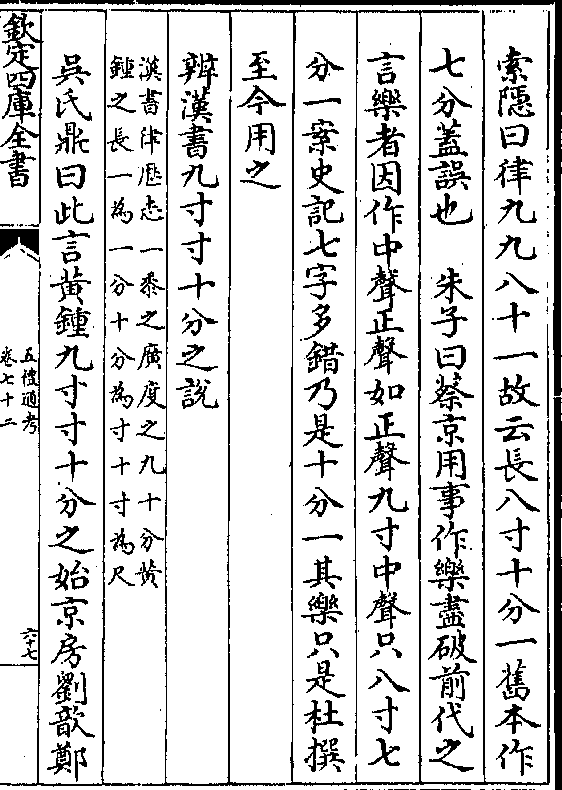 索隱曰律九九八十一故云長八寸十分一舊本作
七分蓋誤也　朱子曰蔡京用事作樂盡破前代之
言樂者因作中聲正聲如正聲九寸中聲只八寸七
分一案史記七字多錯乃是十分一其樂只是杜撰
至今用之
辨漢書九寸寸十分之說
漢書律歷志一黍之廣度之九十分黃
鍾之長一為一分十分為寸十寸為尺
吳氏鼎曰此言黃鍾九寸寸十分之始京房劉歆鄭
欽定四庫全書
五禮通考
卷七十二
六十七